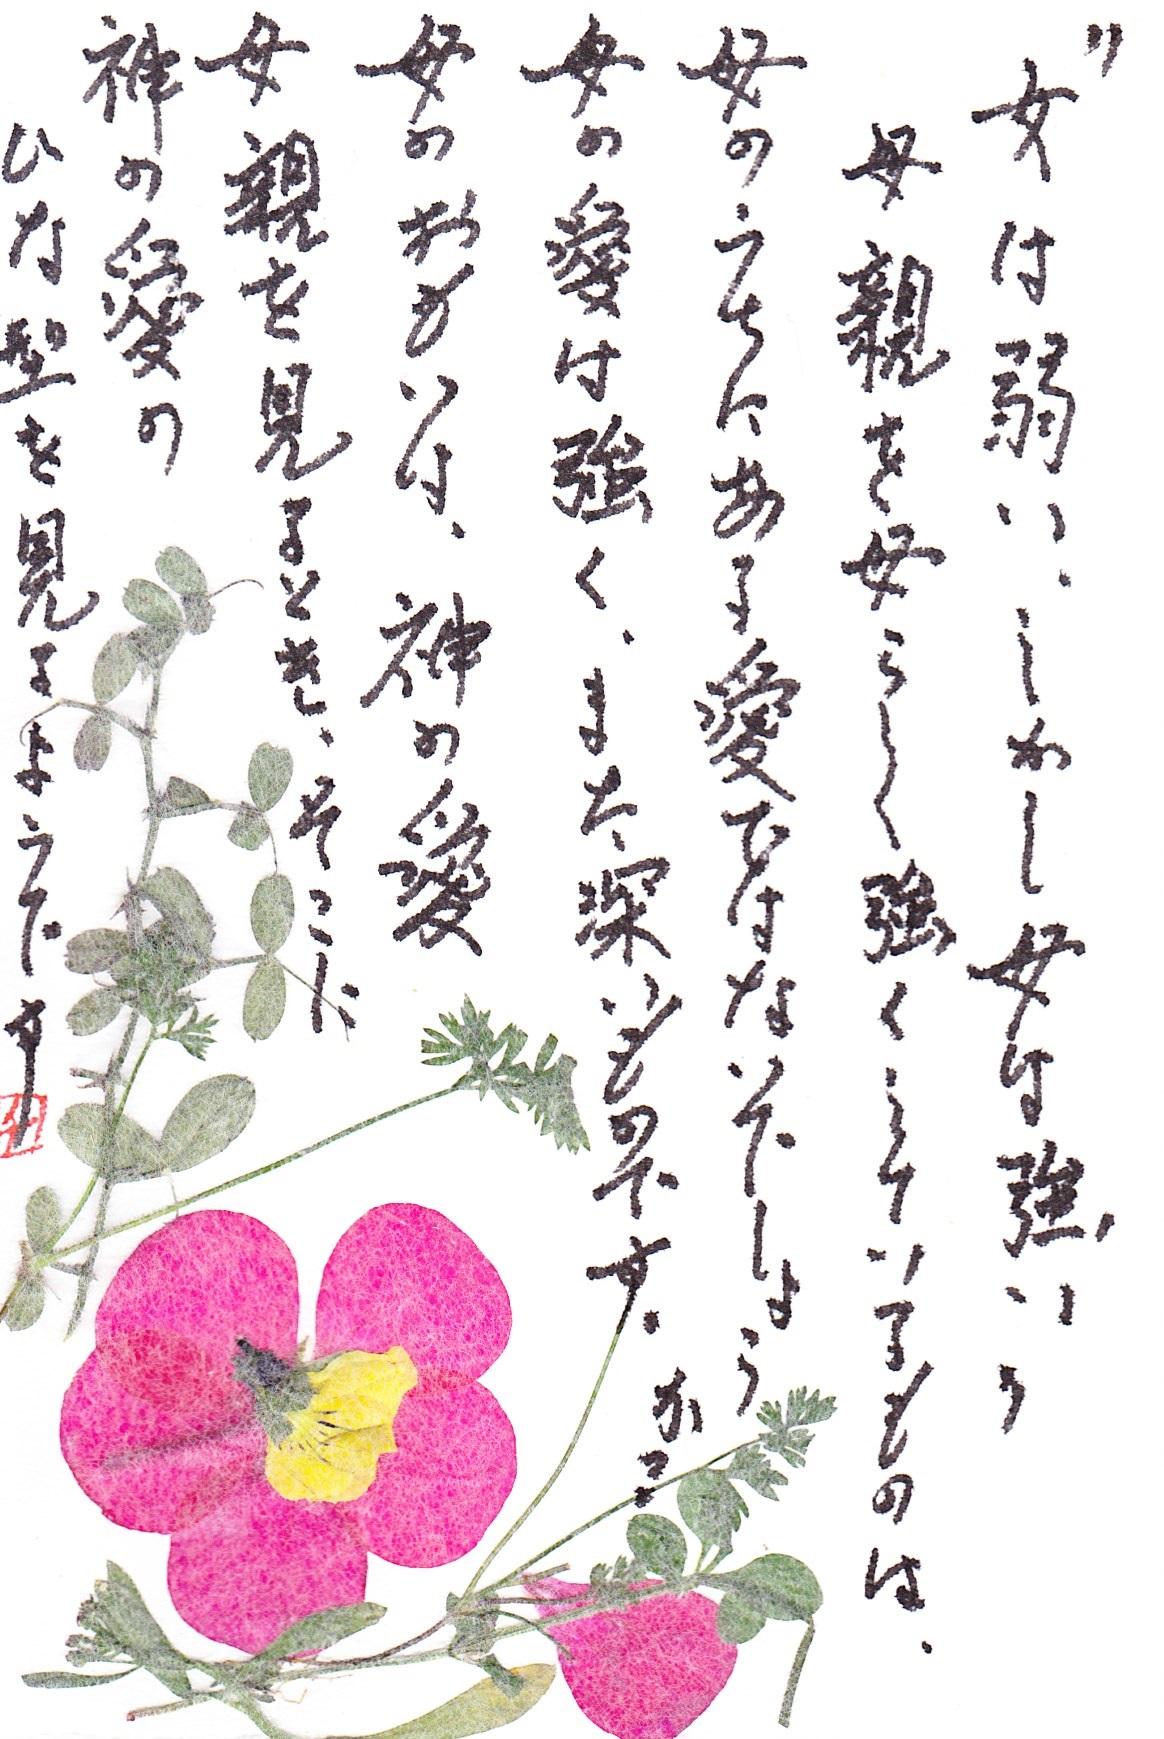 〃女は弱い.しかし母は強い〃
母親を母らしく強くしているものは、
母のうちにある愛ではないでしょうか
母の愛は強く、また深いものです.
母のおもいは、神の愛
母親を見るとき、そこに
神の愛の
ひな型を見るようです